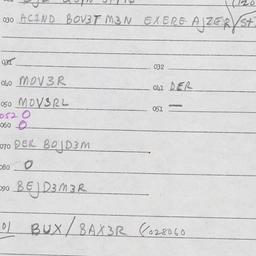 030 ACIND BOV3T M3N EXERE AJZER/ST
035 032
040 MOV3R 041 DER
050 MOVSRL 051 —
052 0
060 0
070 DER BOJD3M
080 0
090 BEJD3M3R
01 BUX/8AX3R (028060